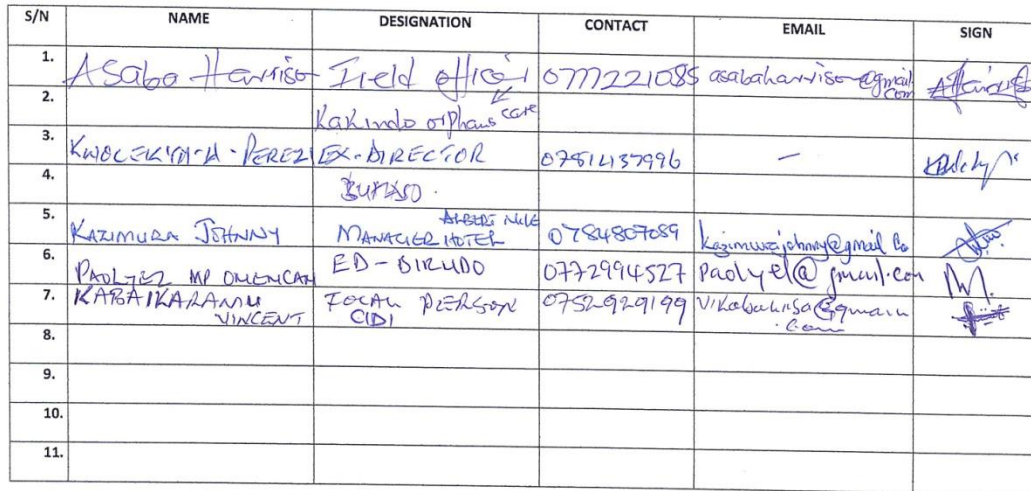 S/N NAME DESIGNATION CONTACT EMAIL SIGN
1. Asabo Harrison Field officer 0777221085 asabaharrison@gmail.com
2. Kakindo orphans care
3. PEREZ EX-DIRECTOR 0781437996 –
4.
5. KAZIMURA JOHNNY MANAGER ALBERT NILE HOTEL 0784807089 kazimurajohnny@gmail Co
6. PAOLYEL MP OMENCAN ED - BIRUDO 0772994527 paolyel@gmail.com
7. KABAIKARAMU VINCENT FOCAL PERSON CIDI 0752929199
8.
9.
10.
11.